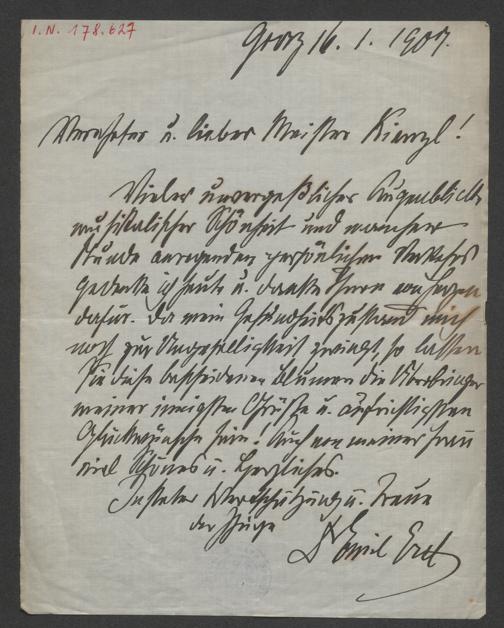 I.N. 178.627
Graz 16. 1. 1907.
Verehrter u. lieber Meister Kienzl!
Vieler unvergeßlicher Augenblicke
musikalischer Schönheit und mancher
Stunde anregenden persönlichen Verkehrs
gedenke ich heute u. danke Ihnen von Herzen
dafür. Da mein Gesundheitszustand mich
noch zur Ungeselligkeit zwingt, so lassen
Sie diese bescheidenen Blumen die Überbringer
meiner innigsten Grüße u. aufrichtigsten
Glückwünsche sein! Auch von meiner Frau
viel Schönes u. Herzliches.
In steter Wertschätzung u. Treue
der Ihrige
Dr Emil Ertl